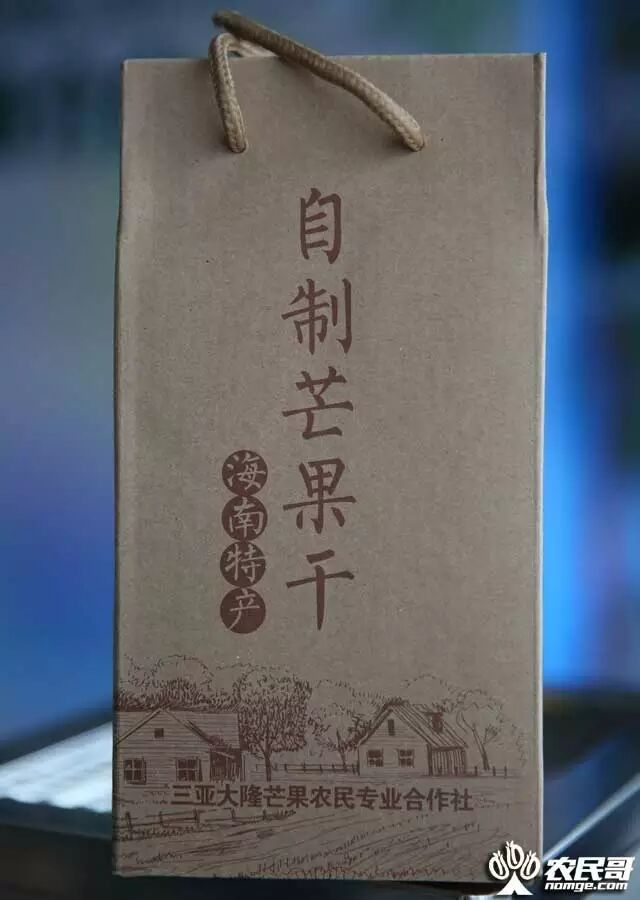 自制芒果干
海南特产
三亚大隆芒果农民专业合作社
农民哥
nomge.com